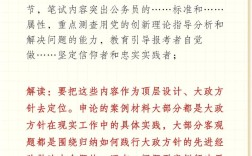 节，笔试内容突出公务员的……标准和……
属性，重点测查用党的创新理论指导分析和
解决问题的能力，教育引导报考者自觉
做……坚定信仰者和忠实实践者；
解读：要把这些内容作为顶层设计、大政方
针去定位。申论的案例材料大部分都是大政
方针在现实工作中的具体实践，大部分客观
题都是围绕归纳如何践行大政方针的先进经